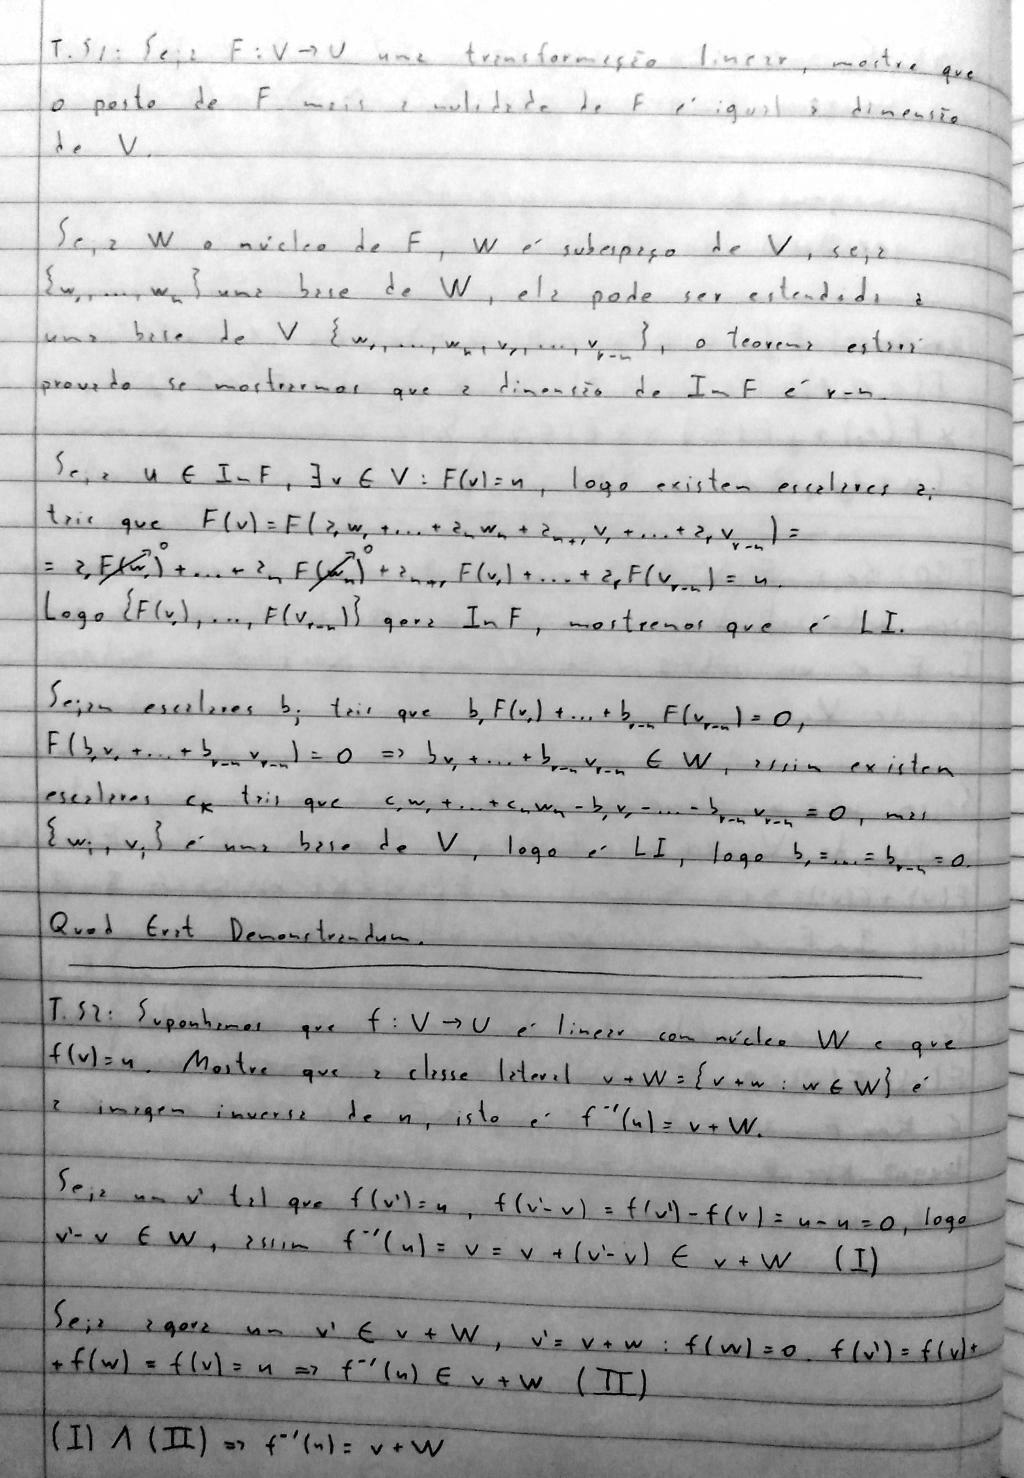 T.51: Seja F: V → U uma transformação linear, mostre que
o posto de F mais a nulidade de F é igual à dimensão
de V.
Seja W o núcleo de F, W é subespaço de V, seja
{w₁, ..., wₙ} uma base de W, ela pode ser estendida a
uma base de V {w₁, ..., wₙ, v₁, ..., vᵣ₋ₙ}, o teorema estará
provado se mostrarmos que a dimensão de Im F é r-n.
Seja u ∈ Im F, ∃ v ∈ V : F(v) = u, logo existem escalares aᵢ
tais que F(v) = F(a₁w₁ + ... + aₙwₙ + aₙ₊₁v₁ + ... + aᵣvᵣ₋ₙ) =
= a₁F(w₁)⁰ + ... + aₙF(wₙ)⁰ + aₙ₊₁F(v₁) + ... + aᵣF(vᵣ₋ₙ) = u.
Logo {F(v₁), ..., F(vᵣ₋ₙ)} gera Im F, mostremos que é LI.
Sejam escalares bⱼ tais que b₁F(v₁) + ... + bᵣ₋ₙF(vᵣ₋ₙ) = 0,
F(b₁v₁ + ... + bᵣ₋ₙvᵣ₋ₙ) = 0 => b₁v₁ + ... + bᵣ₋ₙvᵣ₋ₙ ∈ W, assim existem
escalares cₖ tais que c₁w₁ + ... + cₙwₙ - b₁v₁ - ... - bᵣ₋ₙvᵣ₋ₙ = 0, mas
{wᵢ, vⱼ} é uma base de V, logo é LI, logo b₁ = ... = bᵣ₋ₙ = 0.
Quod Erat Demonstrandum.
T.52: Suponhamos que f: V → U é linear com núcleo W e que
f(v) = u. Mostre que a classe lateral v + W = {v + w : w ∈ W} é
a imagem inversa de u, isto é f⁻¹(u) = v + W.
Seja um v' tal que f(v') = u, f(v'-v) = f(v') - f(v) = u - u = 0, logo
v' - v ∈ W, assim f⁻¹(u) = v = v + (v'-v) ∈ v + W (I)
Seja agora um v' ∈ v + W, v' = v + w : f(w) = 0. f(v') = f(v) +
+ f(w) = f(v) = u => f⁻¹(u) ∈ v + W (II)
(I) ∧ (II) => f⁻¹(u) = v + W